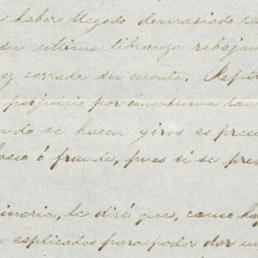 haber llegado demasiado ta
su ultima libranza rebajan
ez cerrada su cuenta. Repit
perjuicio por
ndo se hacen giros es prec
ó fraude, pues si se pre
inoria, le diré que, como ha
explicados para poder dar un